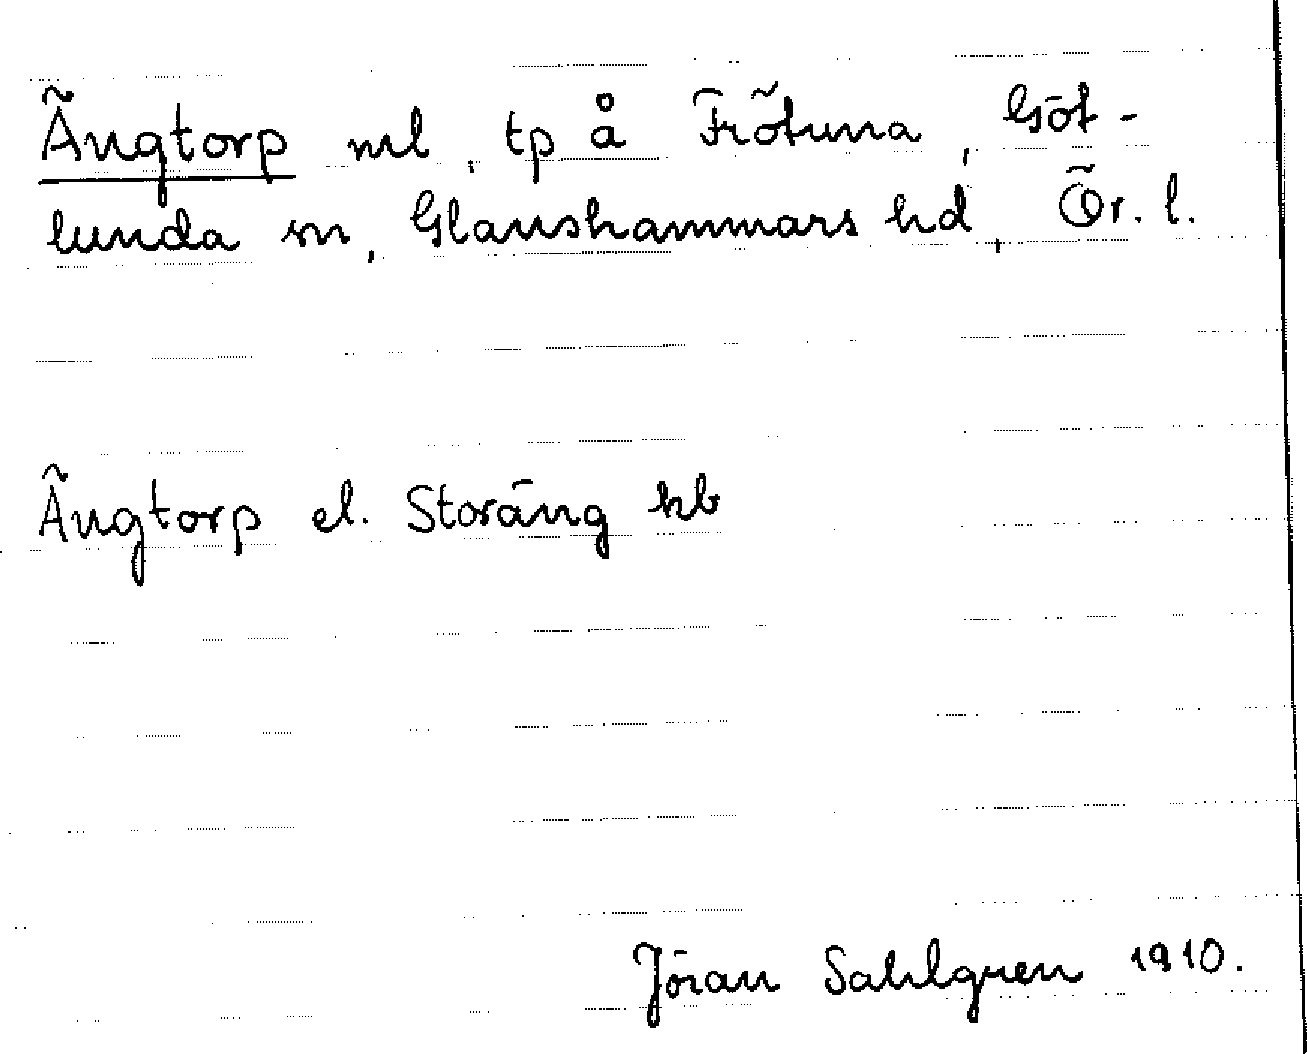 Ängtorp ml, tp å Frötuna, Göt-
lunda sn, Glanshammars hd, Ör. l.
Ängtorp el. Storäng kb
Jöran Sahlgren 1910.